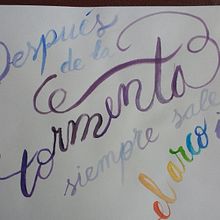 Después
de la
tormenta
siempre sale
el arco